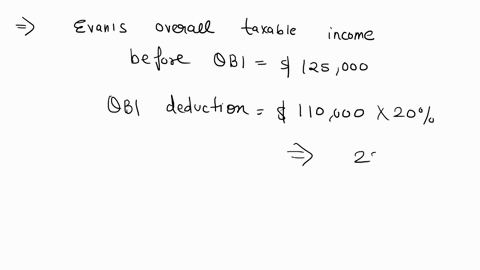 ⇒ Evanis overall taxable income
before QBI = $ 125,000
QBI deduction = $ 110,000 × 20%
⇒ 2